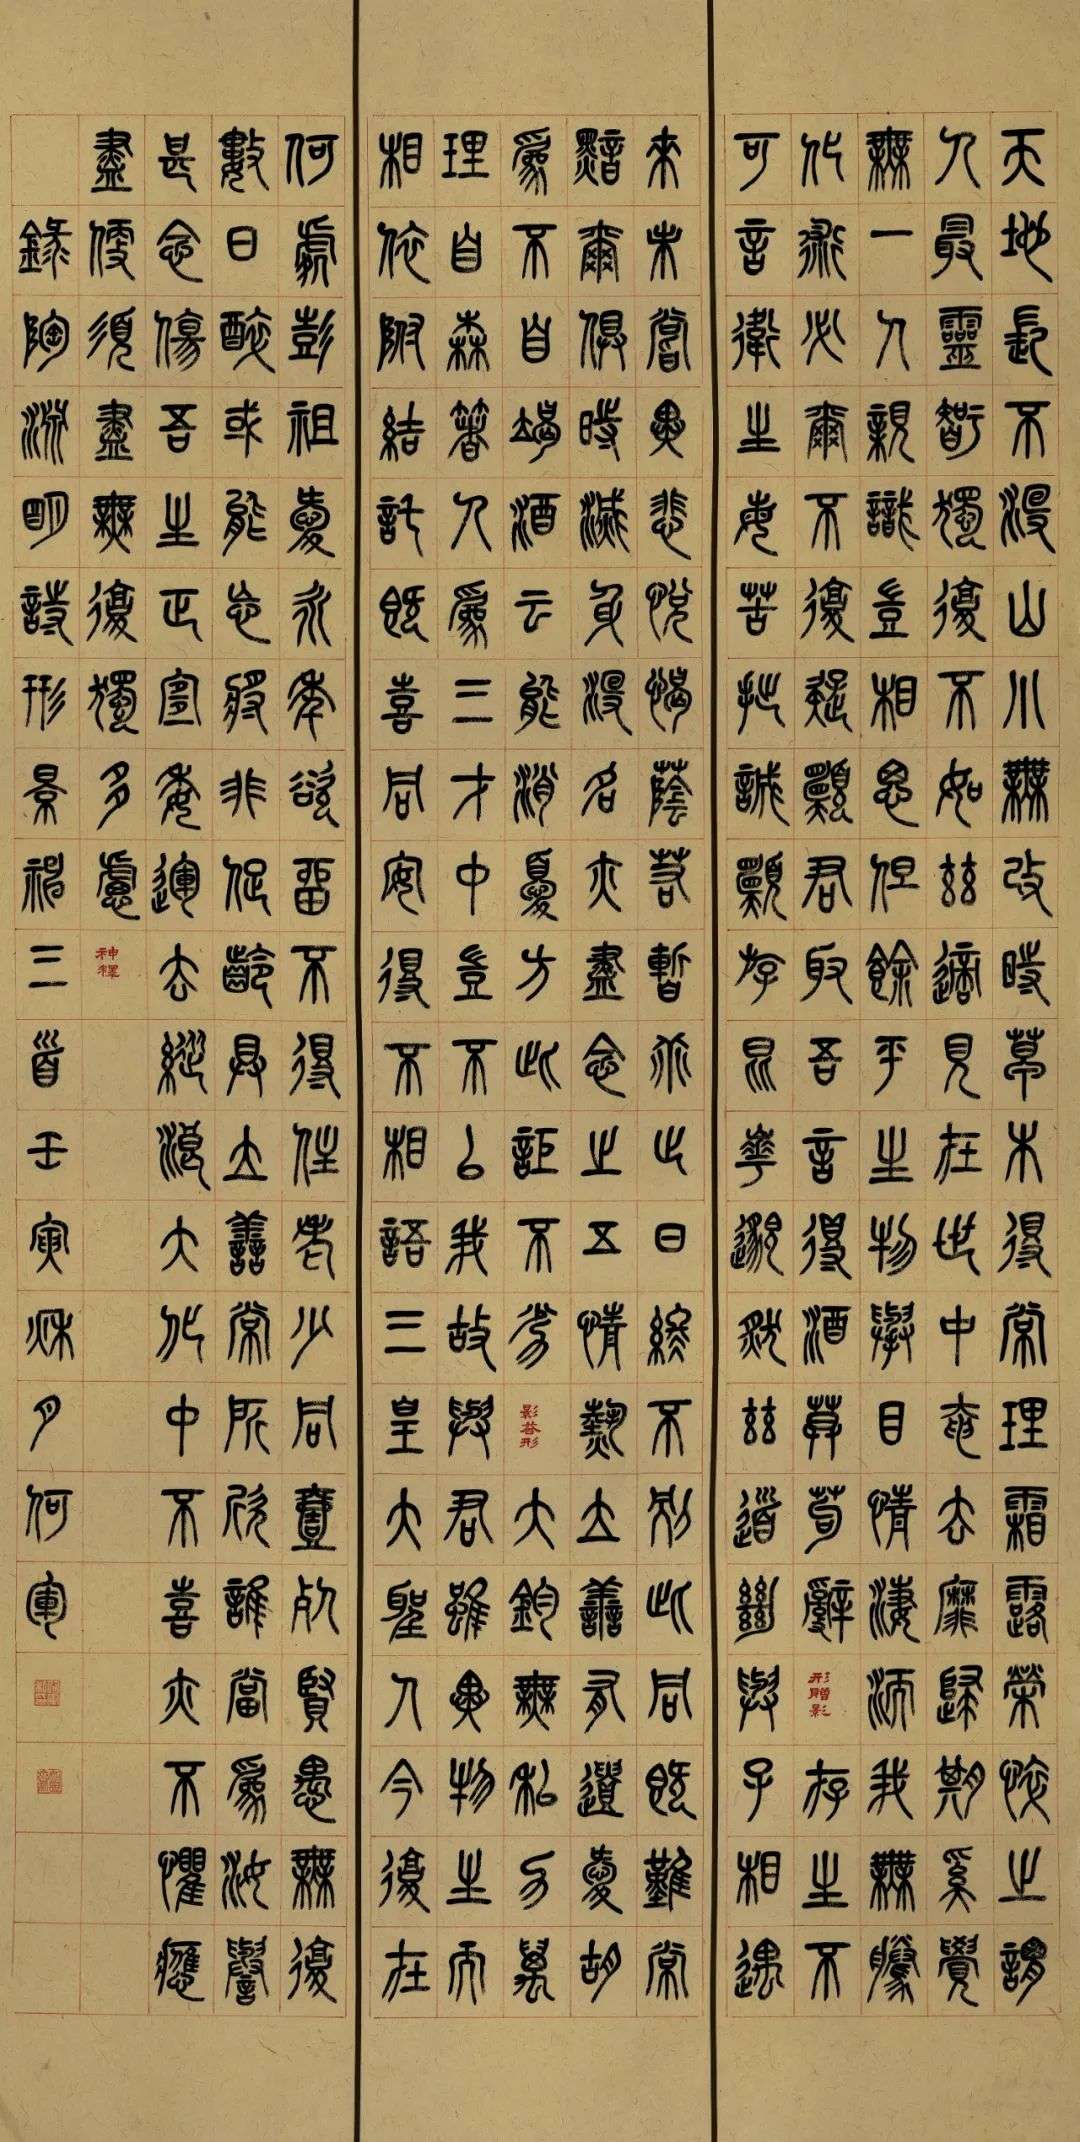 天地長不沒山川無改時草木得常理霜露榮悴之謂
人最靈智獨復不如茲適見在世中奄去靡歸期奚覺
無一人親識豈相思但餘平生物舉目情淒洏我無騰
化術必爾不復疑願君取吾言得酒莫苟辭形贈影存生不
可言衛生每苦拙誠願游昆華邈然茲道絕與子相遇
來未嘗異悲悅憩蔭若暫乖止日終不別此同既難常
黯爾俱時滅身沒名亦盡念之五情熱立善有遺愛胡
為不自竭酒云能消憂方此詎不劣影答形大鈞無私力萬
理自森著人為三才中豈不以我故與君雖異物生而
相依附結託既喜同安得不相語三皇大聖人今復在
何處彭祖愛永年欲留不得住老少同壹死賢愚無復
數日醉或能忘將非促齡具立善常所欣誰當為汝譽
甚念傷吾生正宜委運去縱浪大化中不喜亦不懼應
盡便須盡無復獨多慮神釋
錄陶淵明詩形景神三首壬寅秋月何軍